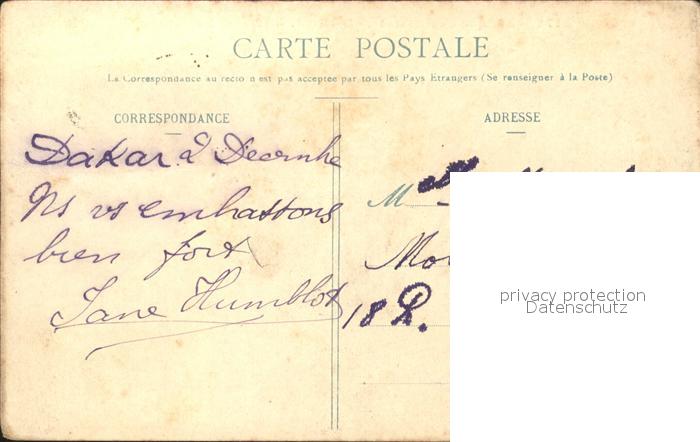 CARTE POSTALE
La Correspondance au recto n'est pas acceptée par tous les Pays Etrangers (Se renseigner à la Poste)
CORRESPONDANCE
ADRESSE
Dakar 2 Decembre
Ns vs embrassons
bien fort
Jane Humblot
M
18 R.
privacy protection
Datenschutz